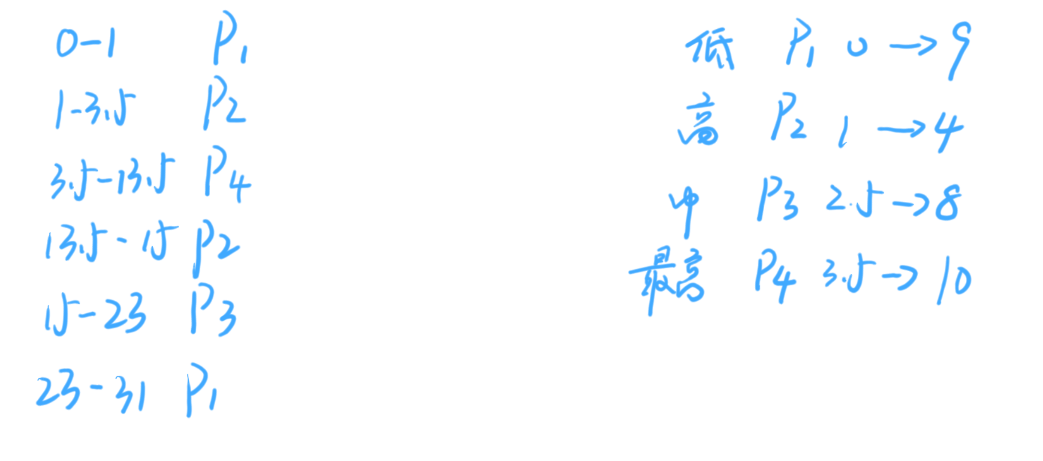 0-1 P1
1-3.5 P2
3.5-13.5 P4
13.5-15 P2
15-23 P3
23-31 P1
低 P1 0→9
高 P2 1→4
中 P3 2.5→8
最高 P4 3.5→10